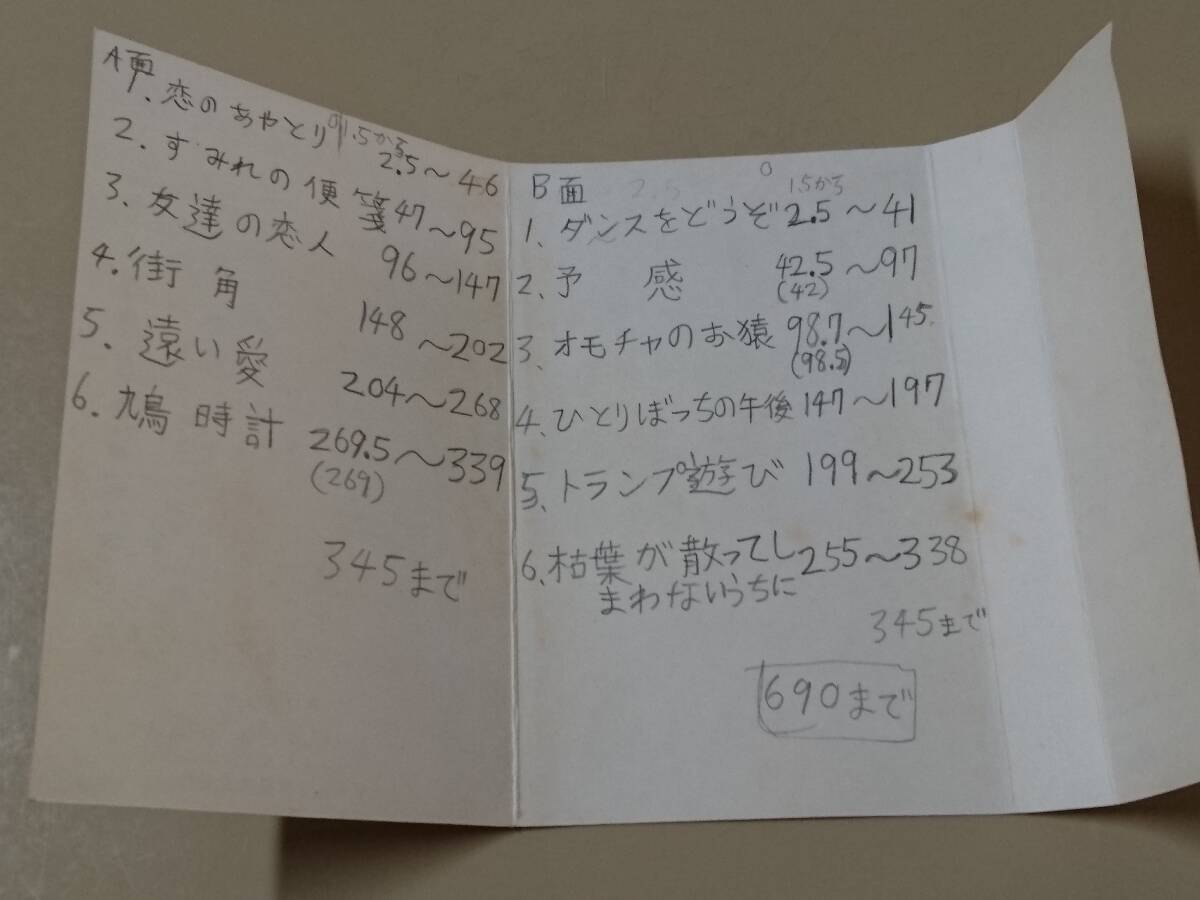 A面
1. 恋のあやとり 1.5から 2.5〜46
2. すみれの便箋 47〜95
3. 友達の恋人 96〜147
4. 街角 148〜202
5. 遠い愛 204〜268
6. 鳩時計 269.5〜339
(269)
345まで
B面 2.5 0 1.5から
1、ダンスをどうぞ 2.5〜41
2、予感 42.5〜97
(42)
3、オモチャのお猿 98.7〜145.
(98.5)
4、ひとりぼっちの午後 147〜197
5、トランプ遊び 199〜253
6、枯葉が散ってし 255〜338
まわないうちに
345まで
690まで